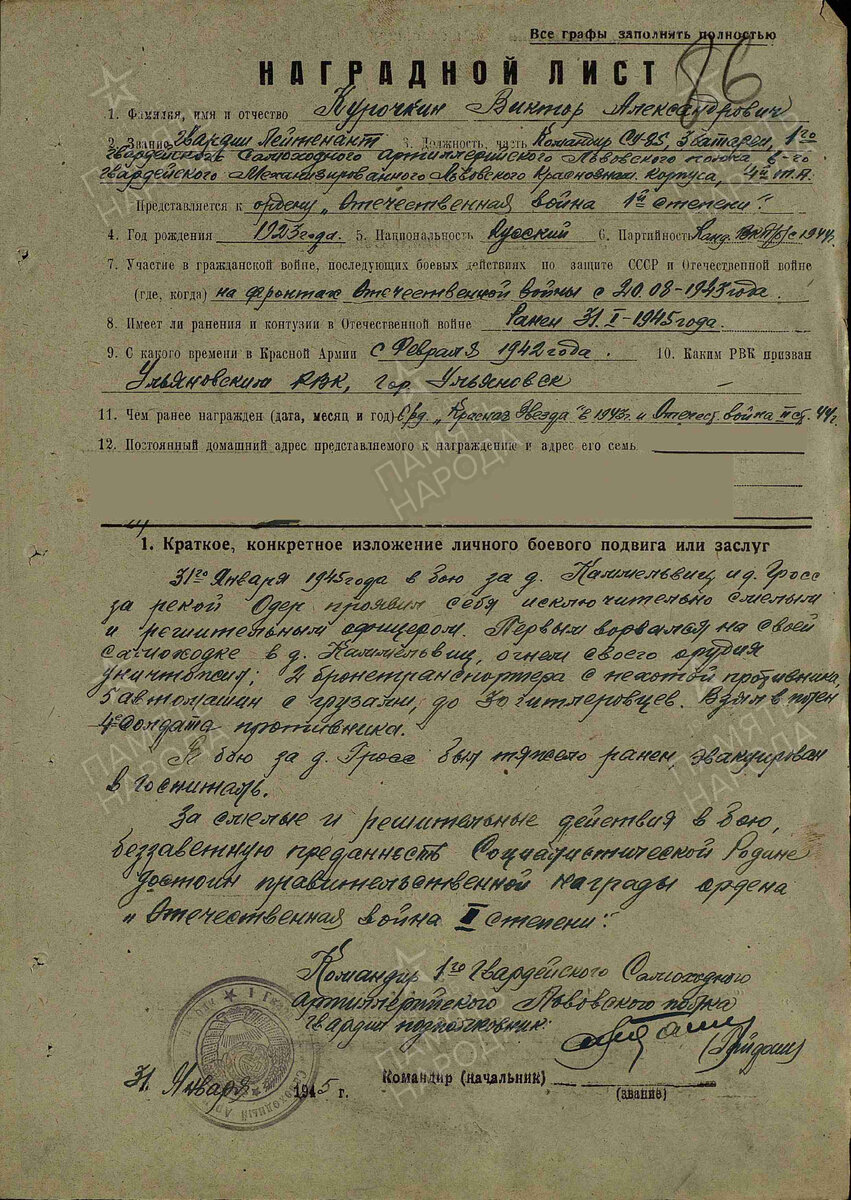 Все графы заполнять полностью
86
НАГРАДНОЙ ЛИСТ
1. Фамилия, имя и отчество Курочкин Виктор Александрович
2. Звание Гвардии Лейтенант 3. Должность, часть Командир СУ-85, 3 батареи, 1го
Гвардейского Самоходного Артиллерийского Львовского полка, 6-го
Гвардейского Механизированного Львовского Краснознам. Корпуса, 4й Т.А.
Представляется к ордену „Отечественная война 1й степени".
4. Год рождения 1923 года. 5. Национальность Русский 6. Партийность Канд. ВКП(б) с 1944г.
7. Участие в гражданской войне, последующих боевых действиях по защите СССР и Отечественной войне
(где, когда) на фронтах Отечественной войны с 20.08-1943 года.
8. Имеет ли ранения и контузии в Отечественной войне Ранен 31.I-1945 года.
9. С какого времени в Красной Армии с Февраля 1942 года. 10. Каким РВК призван
Ульяновским РВК, гор. Ульяновск —
11. Чем ранее награжден (дата, месяц и год) „Красная Звезда" в 1943г. и Отечест. война II ст. 44г.
12. Постоянный домашний адрес представляемого к награждению и адрес его семьи
1. Краткое, конкретное изложение личного боевого подвига или заслуг
31го Января 1945 года в бою за д. Каммельвиц и д. Гросс
за рекой Одер проявил себя исключительно смелым
и решительным офицером. Первым ворвался на своей
самоходке в д. Каммельвиц, огнем своего орудия
уничтожил: 2 бронетранспортера с пехотой противника,
5 автомашин с грузами, до 30 гитлеровцев. Взял в плен
4 солдата противника.
В бою за д. Гросс был тяжело ранен, эвакуирован
в госпиталь.
За смелые и решительные действия в бою,
беззаветную преданность Социалистической Родине
достоин правительственной награды ордена
„Отечественная война II степени".
Командир 1го Гвардейского Самоходного
Артиллерийского Львовского полка
Гвардии подполковник
31 Января 1945 г.
Командир (начальник)
(звание)
ПАМЯТЬ НАРОДА
ПАМЯТЬ НАРОДА
ПАМЯТЬ НАРОДА
ПАМЯТЬ НАРОДА
ПАМЯТЬ НАРОДА
ПАМЯТЬ НАРОДА